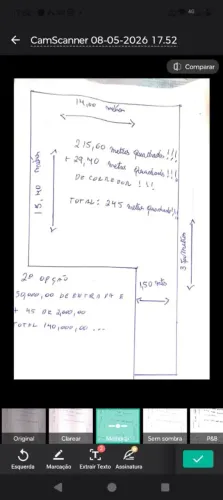 CamScanner 08-05-2026 17.52
Comparar
14,00 metros
215,60 metros quadrados!!!
+ 29,40 metros quadrados!!!
DE CORREDOR !!!
TOTAL: 245 metros quadrados!!
15,40 metros
2ª OPÇÃO
30,000,00 DE ENTRADA E
+ 45 DE 2,000,00
TOTAL 140,000,00 ...
1,50 mts
Original
Clarear
Sem sombra
P&B
Esquerda
Marcação
Extrair Texto
Assinatura